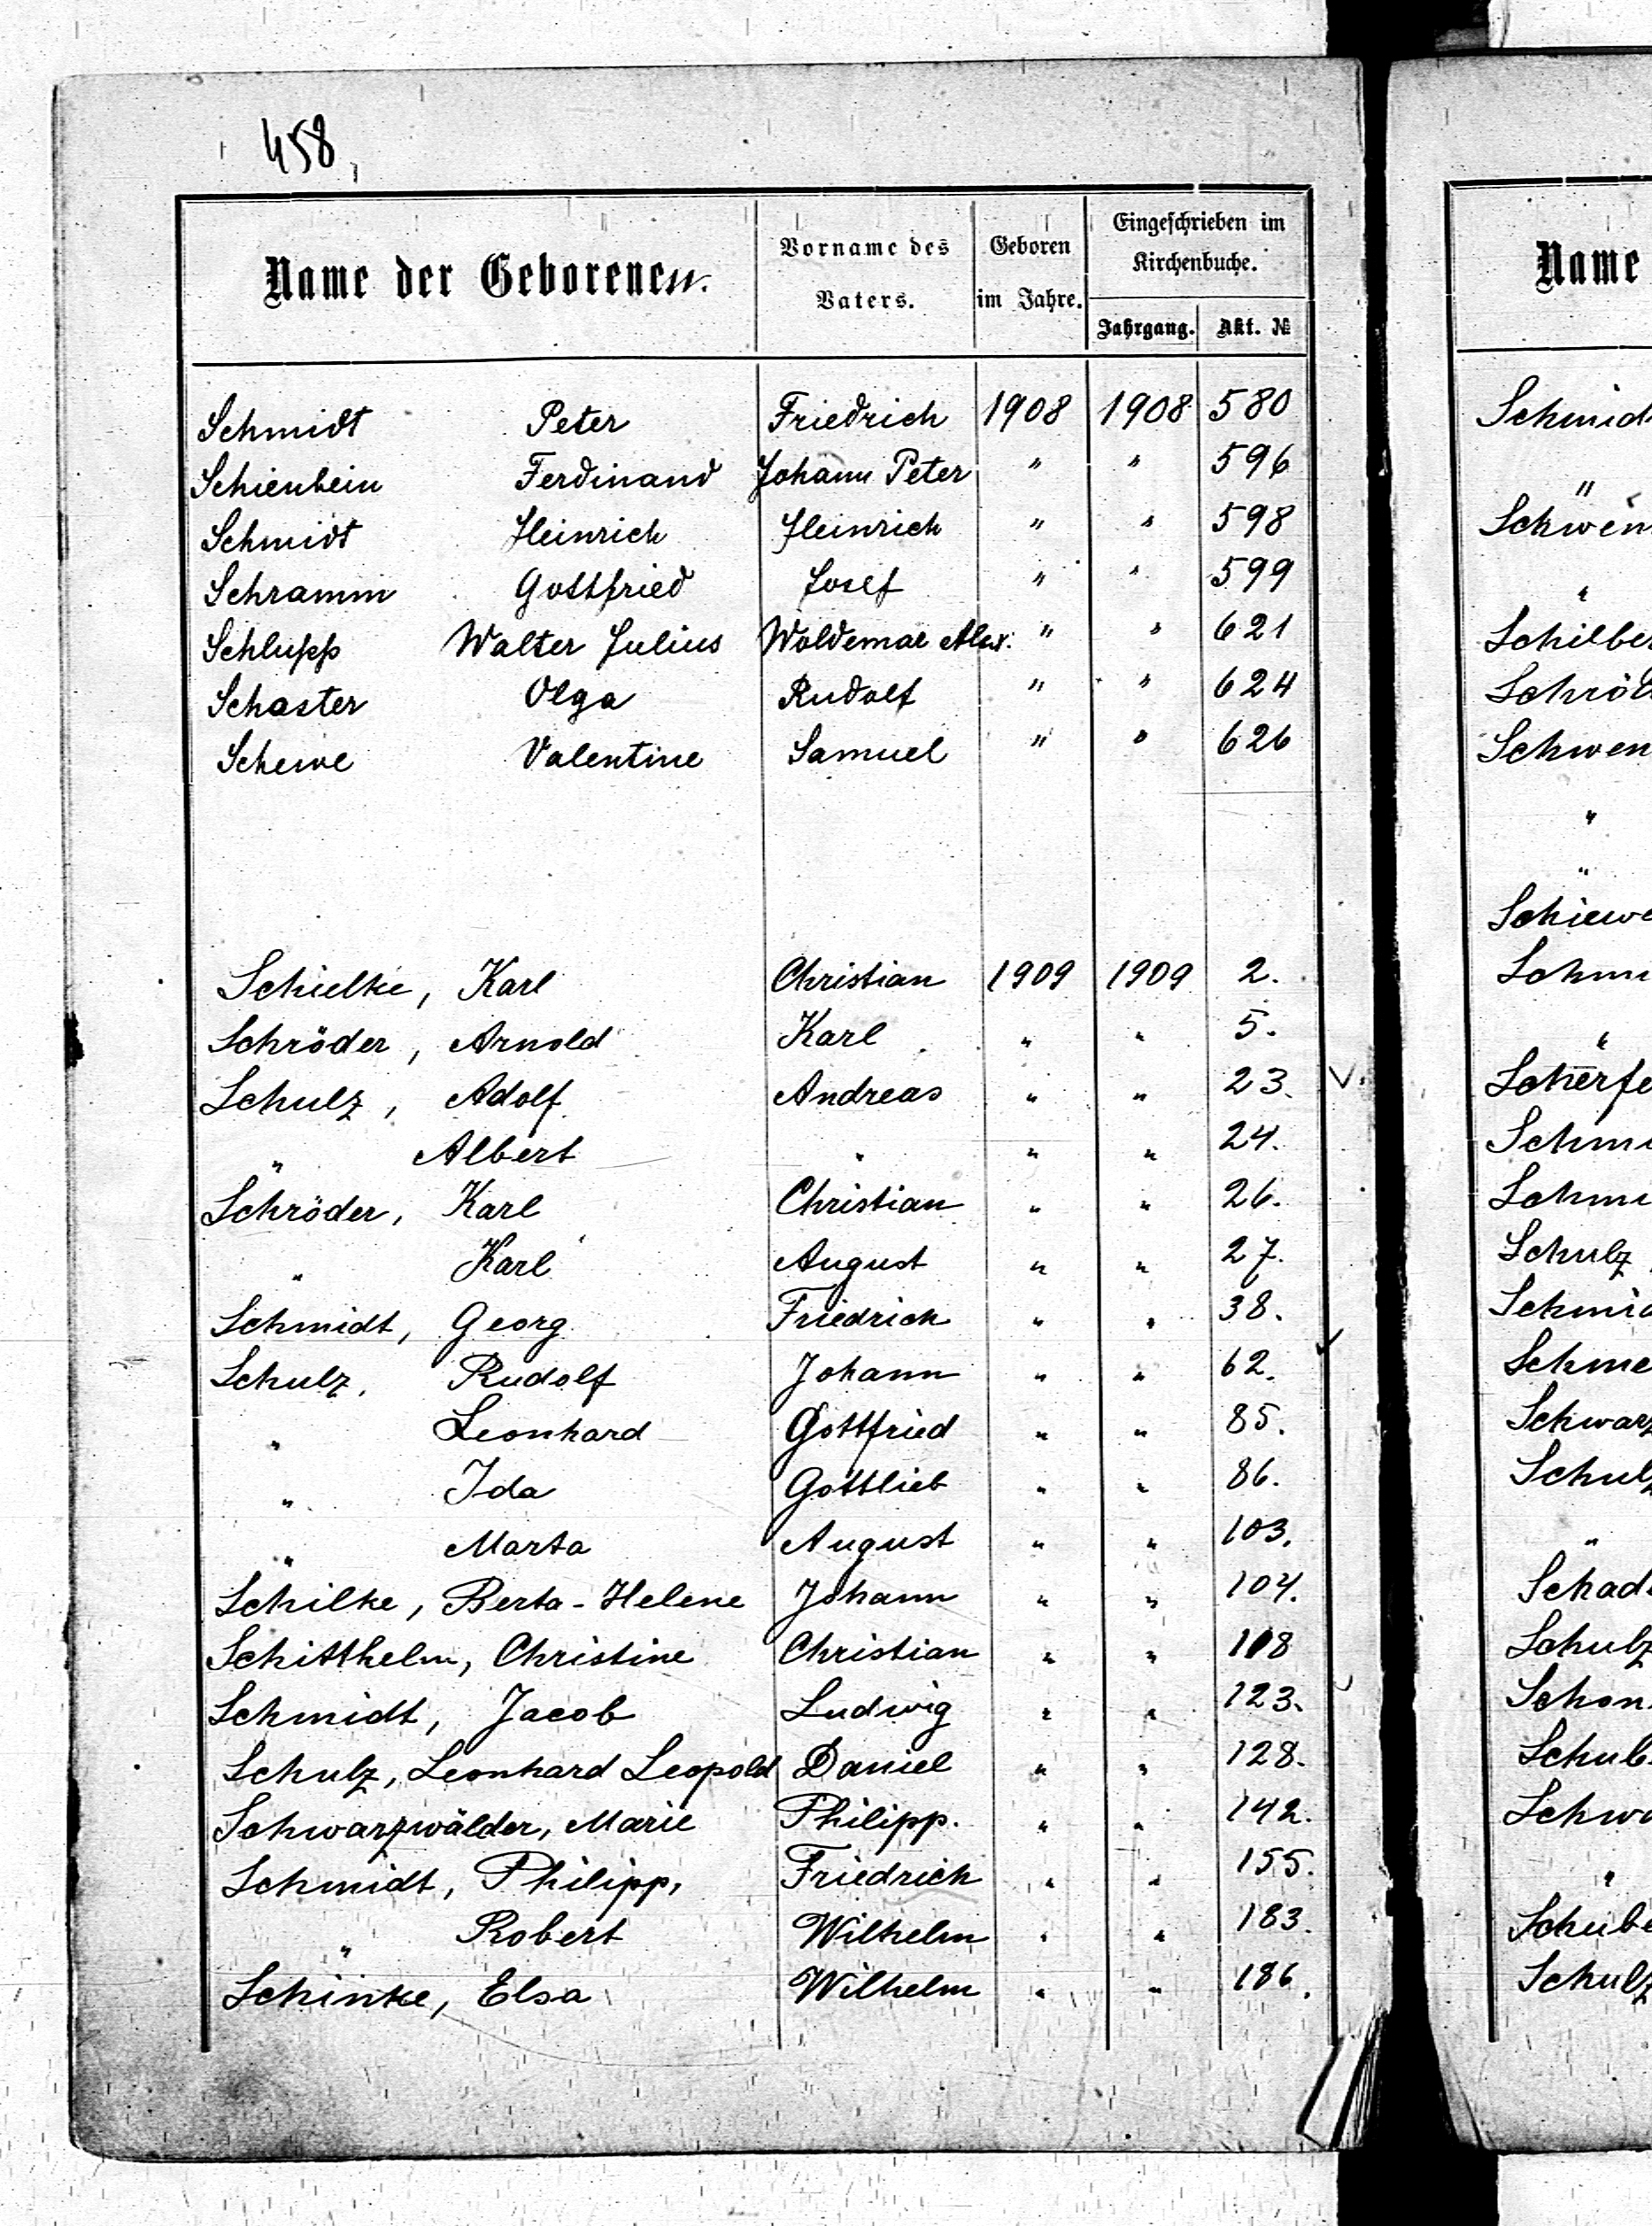 458
Name der Geborenen.
Vorname des Vaters.
Geboren im Jahre.
Eingeschrieben im Kirchenbuche.
Jahrgang.
Akt. №
Schmidt Peter Friedrich 1908 1908 580
Schienbein Ferdinand Johann Peter " " 596
Schmidt Heinrich Heinrich " " 598
Schramm Gottfried Josef " " 599
Schlupp Walter Julius Woldemar Alex. " " 621
Schaster Olga Rudolf " " 624
Schewe Valentine Samuel " " 626
Schielke, Karl Christian 1909 1909 2.
Schröder, Arnold Karl " " 5.
Schulz, Adolf Andreas " " 23.
" Albert " " " 24.
Schröder, Karl Christian " " 26.
" Karl August " " 27.
Schmidt, Georg Friedrich " " 38.
Schulz, Rudolf Johann " " 62.
" Leonhard Gottfried " " 85.
" Ida Gottlieb " " 86.
" Marta August " " 103.
Schilke, Berta-Helene Johann " " 104.
Schitthelm, Christine Christian " " 108
Schmidt, Jacob Ludwig " " 123.
Schulz, Leonhard Leopold Daniel " " 128.
Schwarzwälder, Marie Philipp. " " 142.
Schmidt, Philipp, Friedrich " " 155.
" Robert Wilhelm " " 183.
Schinke, Elsa Wilhelm " " 186.
Name
Schmid
"
Schwen
"
Schilbe
Schröd
Schwen
"
"
Schiewe
Schm
"
Scherfe
Schm
Schm
Schulz
Schmid
Schme
Schwarz
Schulz
"
Schad
Schulz
Schon
Schul
Schwa
"
Schube
Schulz